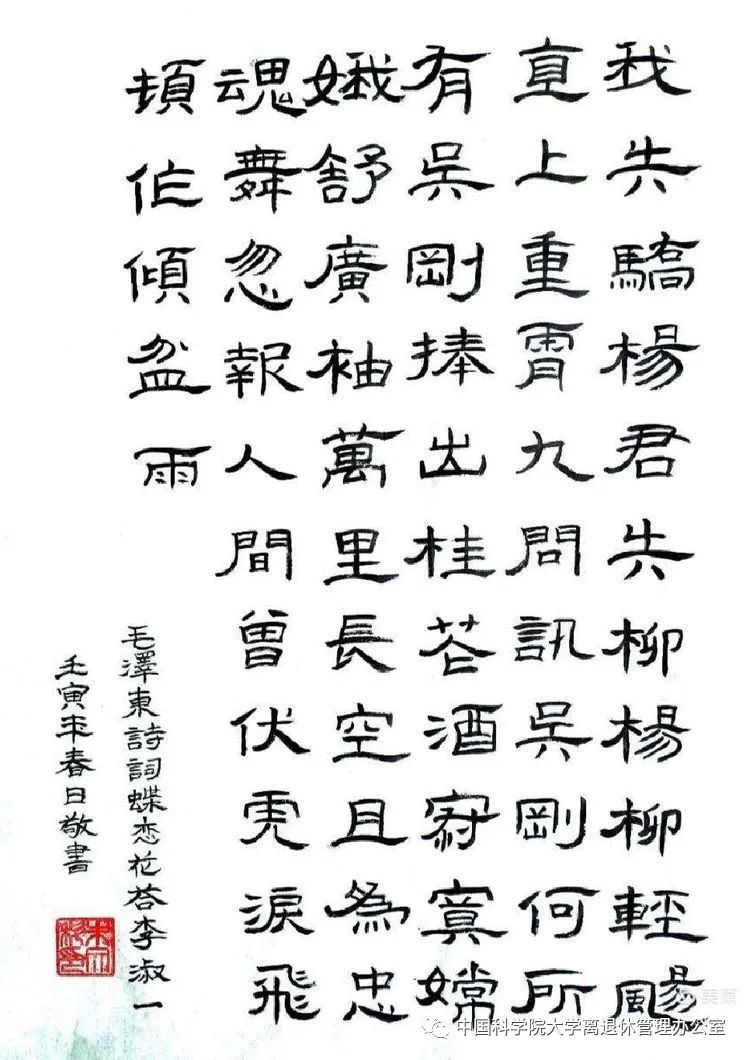 我失驕楊君失柳楊柳輕颺
直上重霄九問訊吳剛何所
有吳剛捧出桂花酒寂寞嫦
娥舒廣袖萬里長空且為忠
魂舞忽報人間曾伏虎淚飛
頓作傾盆雨
毛澤東詩詞蝶恋花答李淑一
壬寅年春日敬書
美篇
中国科学院大学离退休管理办公室